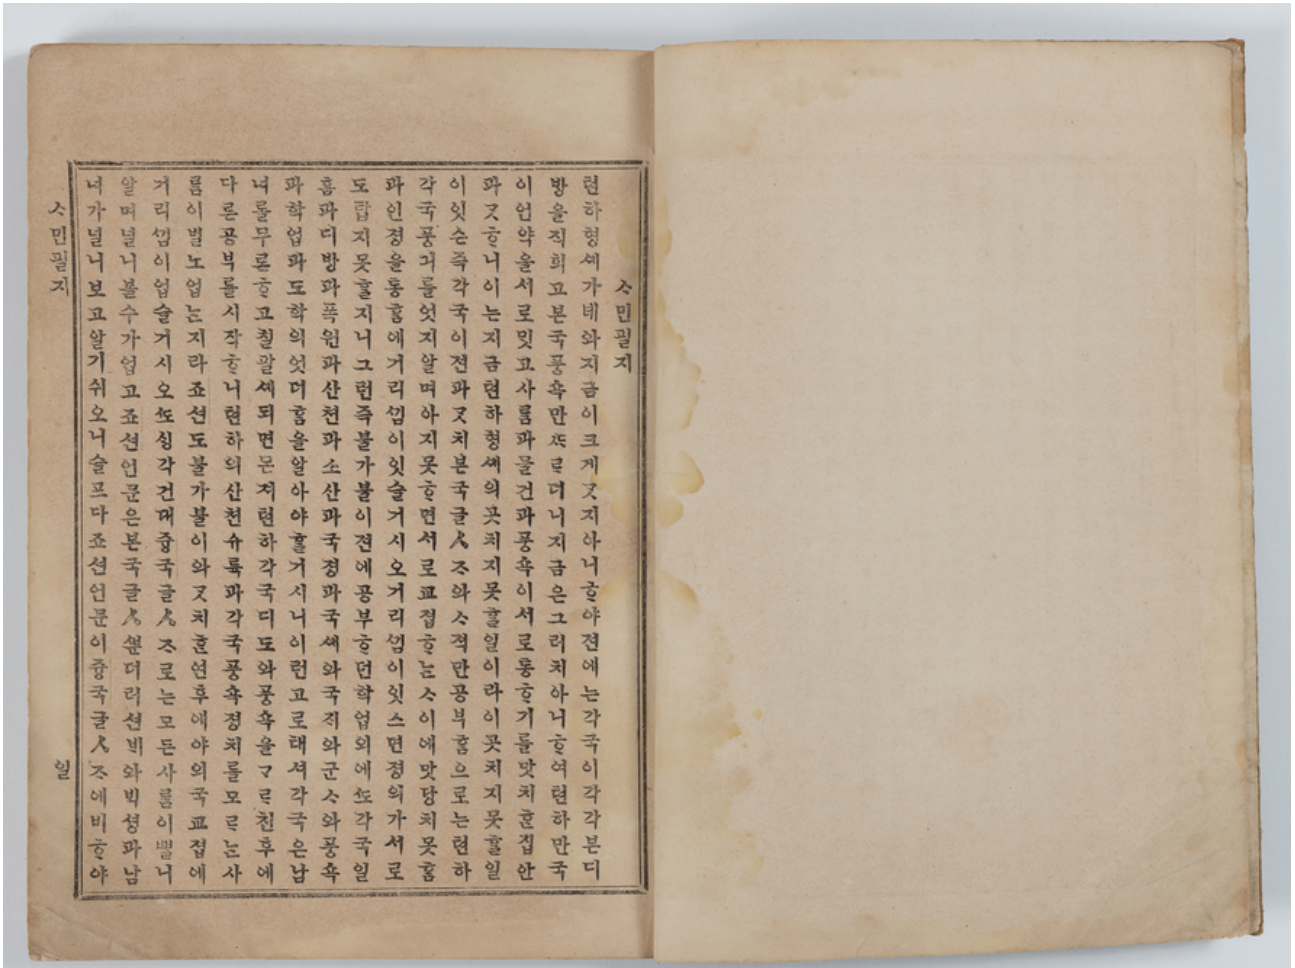 ᄉᆞ민필지
텬하형셰가녜와지금이크게ᄀᆞᆺ지아니ᄒᆞ야젼에는각국이각각본디
방을직희고본국풍쇽만ᄯᆞ르더니지금은그러치아니ᄒᆞ여텬하만국
이언약을서로밋고사ᄅᆞᆷ과물건과풍쇽이서로통ᄒᆞ기를맛치ᄒᆞᆫ집안
과ᄀᆞᆺᄒᆞ니이는지금텬하형셰의곳치지못ᄒᆞᆯ일이라이곳치지못ᄒᆞᆯ일
이잇슨즉각국이젼과ᄀᆞᆺ치본국글ㅅᄌᆞ와ᄉᆞ젹만공부ᄒᆞᆷ으로는텬하
각국풍긔를엇지알며아지못ᄒᆞ면서로교졉ᄒᆞ는ᄉᆞ이에맛당치못ᄒᆞᆷ
과인졍을통ᄒᆞᆷ에거리ᄭᅵᆷ이잇슬거시오거리ᄭᅵᆷ이잇스면졍의가서로
도탑지못ᄒᆞᆯ지니그런즉불가불이젼에공부ᄒᆞ던학업외에ᄯᅩ각국일
홈과디방과폭원과산쳔과소산과국졍과국셰와국ᄌᆡ와군ᄉᆞ와풍쇽
과학업과도학의엇더ᄒᆞᆷ을알아야ᄒᆞᆯ거시니이런고로태셔각국은남
녀를무론ᄒᆞ고칠팔셰되면몬져텬하각국디도와풍쇽을ᄀᆞᄅᆞ친후에
다른공부를시작ᄒᆞ니텬하의산쳔슈륙과각국풍쇽졍치를모르는사
ᄅᆞᆷ이별노업는지라죠션도불가불이와ᄀᆞᆺ치ᄒᆞᆫ연후에야외국교졉에
거리ᄭᅵᆷ이업슬거시오ᄯᅩᄉᆡᆼ각건대즁국글ㅅᄌᆞ로는모든사ᄅᆞᆷ이ᄲᆞᆯ니
알며널니볼수가업고죠션언문은본국글ㅅᄲᅮᆫ더러션ᄇᆡ와ᄇᆡᆨ셩과남
녀가널니보고알기쉬오니슬프다죠션언문이즁국글ㅅᄌᆞ에비ᄒᆞ야
ᄉᆞ민필지
일